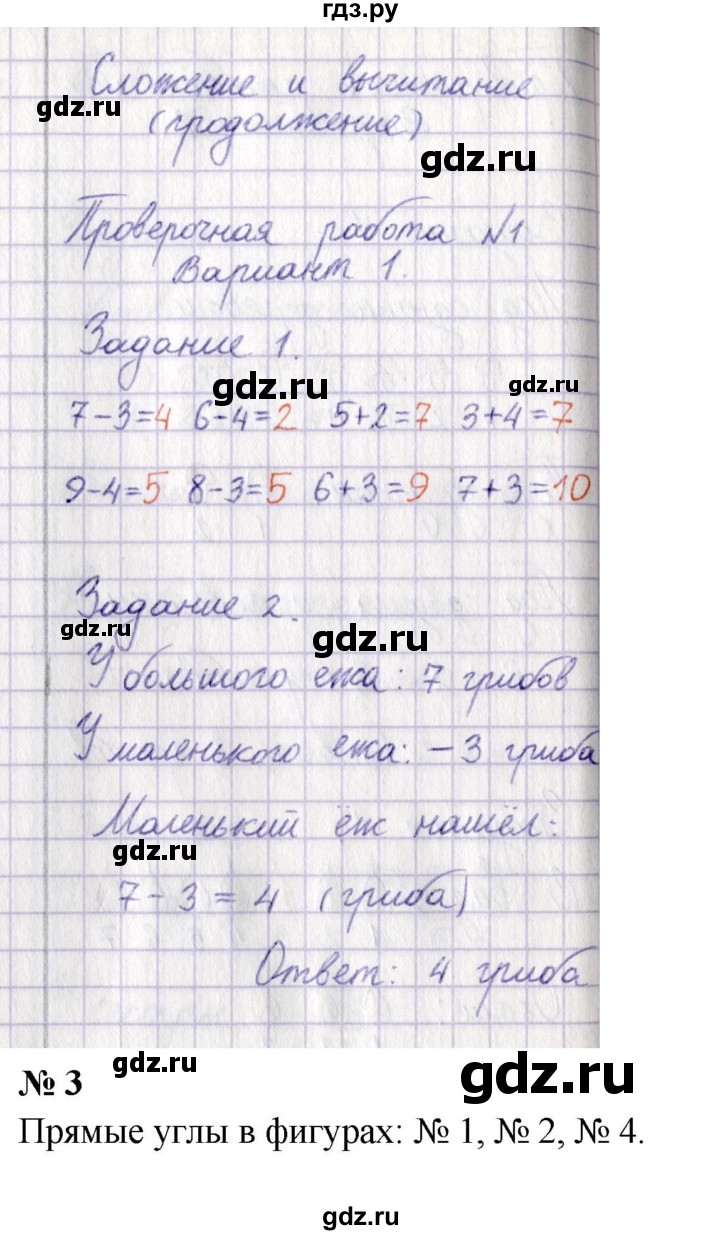 гдз.ру
Сложение и вычитание
gdz.ru
(продолжение)
gdz.ru
Проверочная работа №1
Вариант 1.
Задание 1.
gdz.ru
7-3=4 6-4=2 5+2=7 3+4=7
9-4=5 8-3=5 6+3=9 7+3=10
Задание 2.
gdz.ru
gdz.ru
У большого ежа: 7 грибов
У маленького ежа: -3 гриба
Маленький ёж нашёл:
gdz.ru
7-3=4 (гриба)
Ответ: 4 гриба
gdz.ru
gdz.ru
№ 3
Прямые углы в фигурах: № 1, № 2, № 4.
gdz.ru